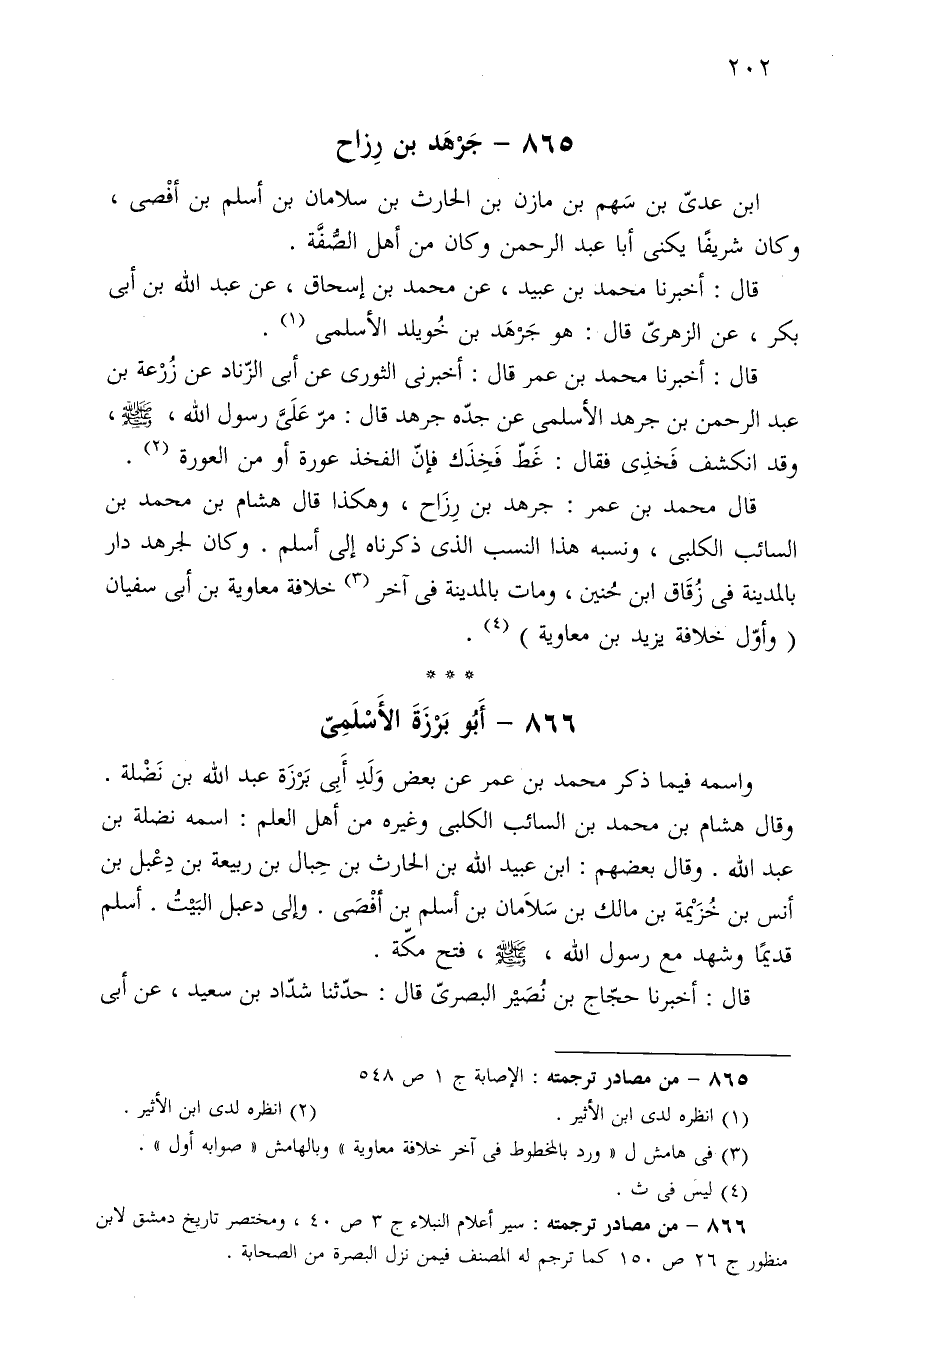 ٢٠٢
٨٦٥ - جَرْهَد بن رِزاح
ابن عدىّ بن سَهم بن مازن بن الحارث بن سلامان بن أسلم بن أفْصى ،
وكان شريفًا يكنى أبا عبد الرحمن وكان من أهل الصُّفَّة .
قال : أخبرنا محمد بن عبيد ، عن محمد بن إسحاق ، عن عبد الله بن أبى
بكر ، عن الزهرىّ قال : هو جَرْهَد بن خُويلد الأسلمى (١) .
قال : أخبرنا محمد بن عمر قال : أخبرنى الثورى عن أبى الزّناد عن زُرْعة بن
عبد الرحمن بن جرهد الأسلمى عن جدّه جرهد قال : مرّ عَلَىَّ رسول الله ، ﷺ ،
وقد انكشف فَخذِى فقال : غَطّ فَخِذَك فإنّ الفخذ عورة أو من العورة (٢) .
قال محمد بن عمر : جرهد بن رِزَاح ، وهكذا قال هشام بن محمد بن
السائب الكلبى ، ونسبه هذا النسب الذى ذكرناه إلى أسلم . وكان لجرهد دار
بالمدينة فى زُقَاق ابن حُنين ، ومات بالمدينة فى آخر (٣) خلافة معاوية بن أبى سفيان
( وأوّل خلافة يزيد بن معاوية ) (٤) .
* * *
٨٦٦ - أَبُو بَرْزَةَ الأَسْلَمِىّ
واسمه فيما ذكر محمد بن عمر عن بعض وَلَدِ أَبِى بَرْزَة عبد الله بن نَضْلة .
وقال هشام بن محمد بن السائب الكلبى وغيره من أهل العلم : اسمه نضلة بن
عبد الله . وقال بعضهم : ابن عبيد الله بن الحارث بن حِبال بن ربيعة بن دِعْبل بن
أنس بن خُزَيْمة بن مالك بن سَلاَمان بن أسلم بن أَفْصَى . وإلى دعبل البَيْتُ . أسلم
قديمًا وشهد مع رسول الله ، ﷺ ، فتح مكّة .
قال : أخبرنا حجّاج بن نُصَيْر البصرىّ قال : حدّثنا شدّاد بن سعيد ، عن أبى
٨٦٥ - من مصادر ترجمته : الإصابة ج ١ ص ٥٤٨
(١) انظره لدى ابن الأثير . (٢) انظره لدى ابن الأثير .
(٣) فى هامش ل « ورد بالمخطوط فى آخر خلافة معاوية » وبالهامش « صوابه أول » .
(٤) ليس فى ث .
٨٦٦ - من مصادر ترجمته : سير أعلام النبلاء ج ٣ ص ٤٠ ، ومختصر تاريخ دمشق لابن
منظور ج ٢٦ ص ١٥٠ كما ترجم له المصنف فيمن نزل البصرة من الصحابة .